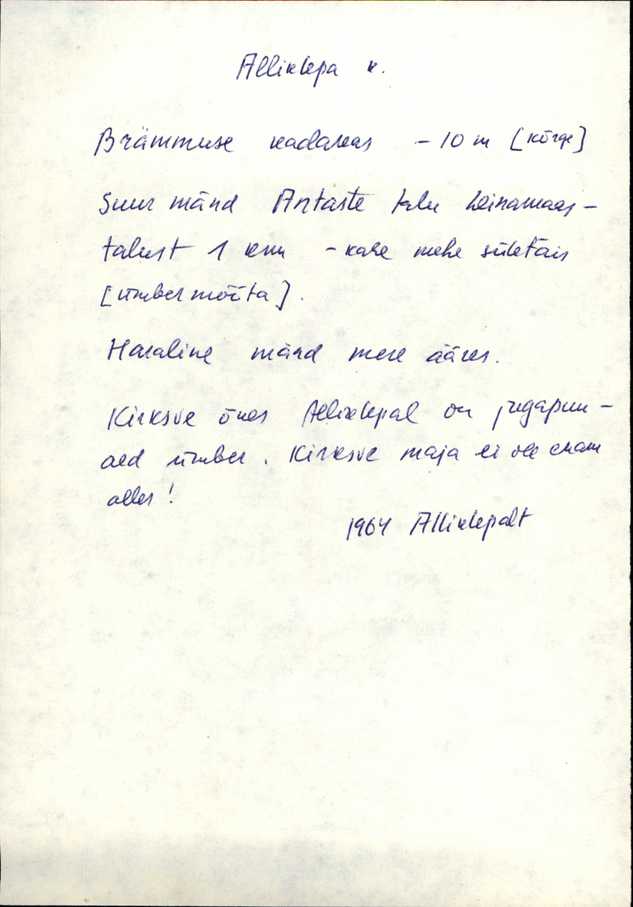 Alliklepa k.
Brämmuse kadakas – 10 m [kõrge]
Suur mänd Antaste talu heinamaas –
talust 1 km – kahe mehe sületäis
[ümbermõõta].
Haraline mänd mere ääres.
Kirksve õues Alliklepal on jugapuu –
aed ümber. Kirksve maja ei ole enam
alles!
1964 Alliklepalt